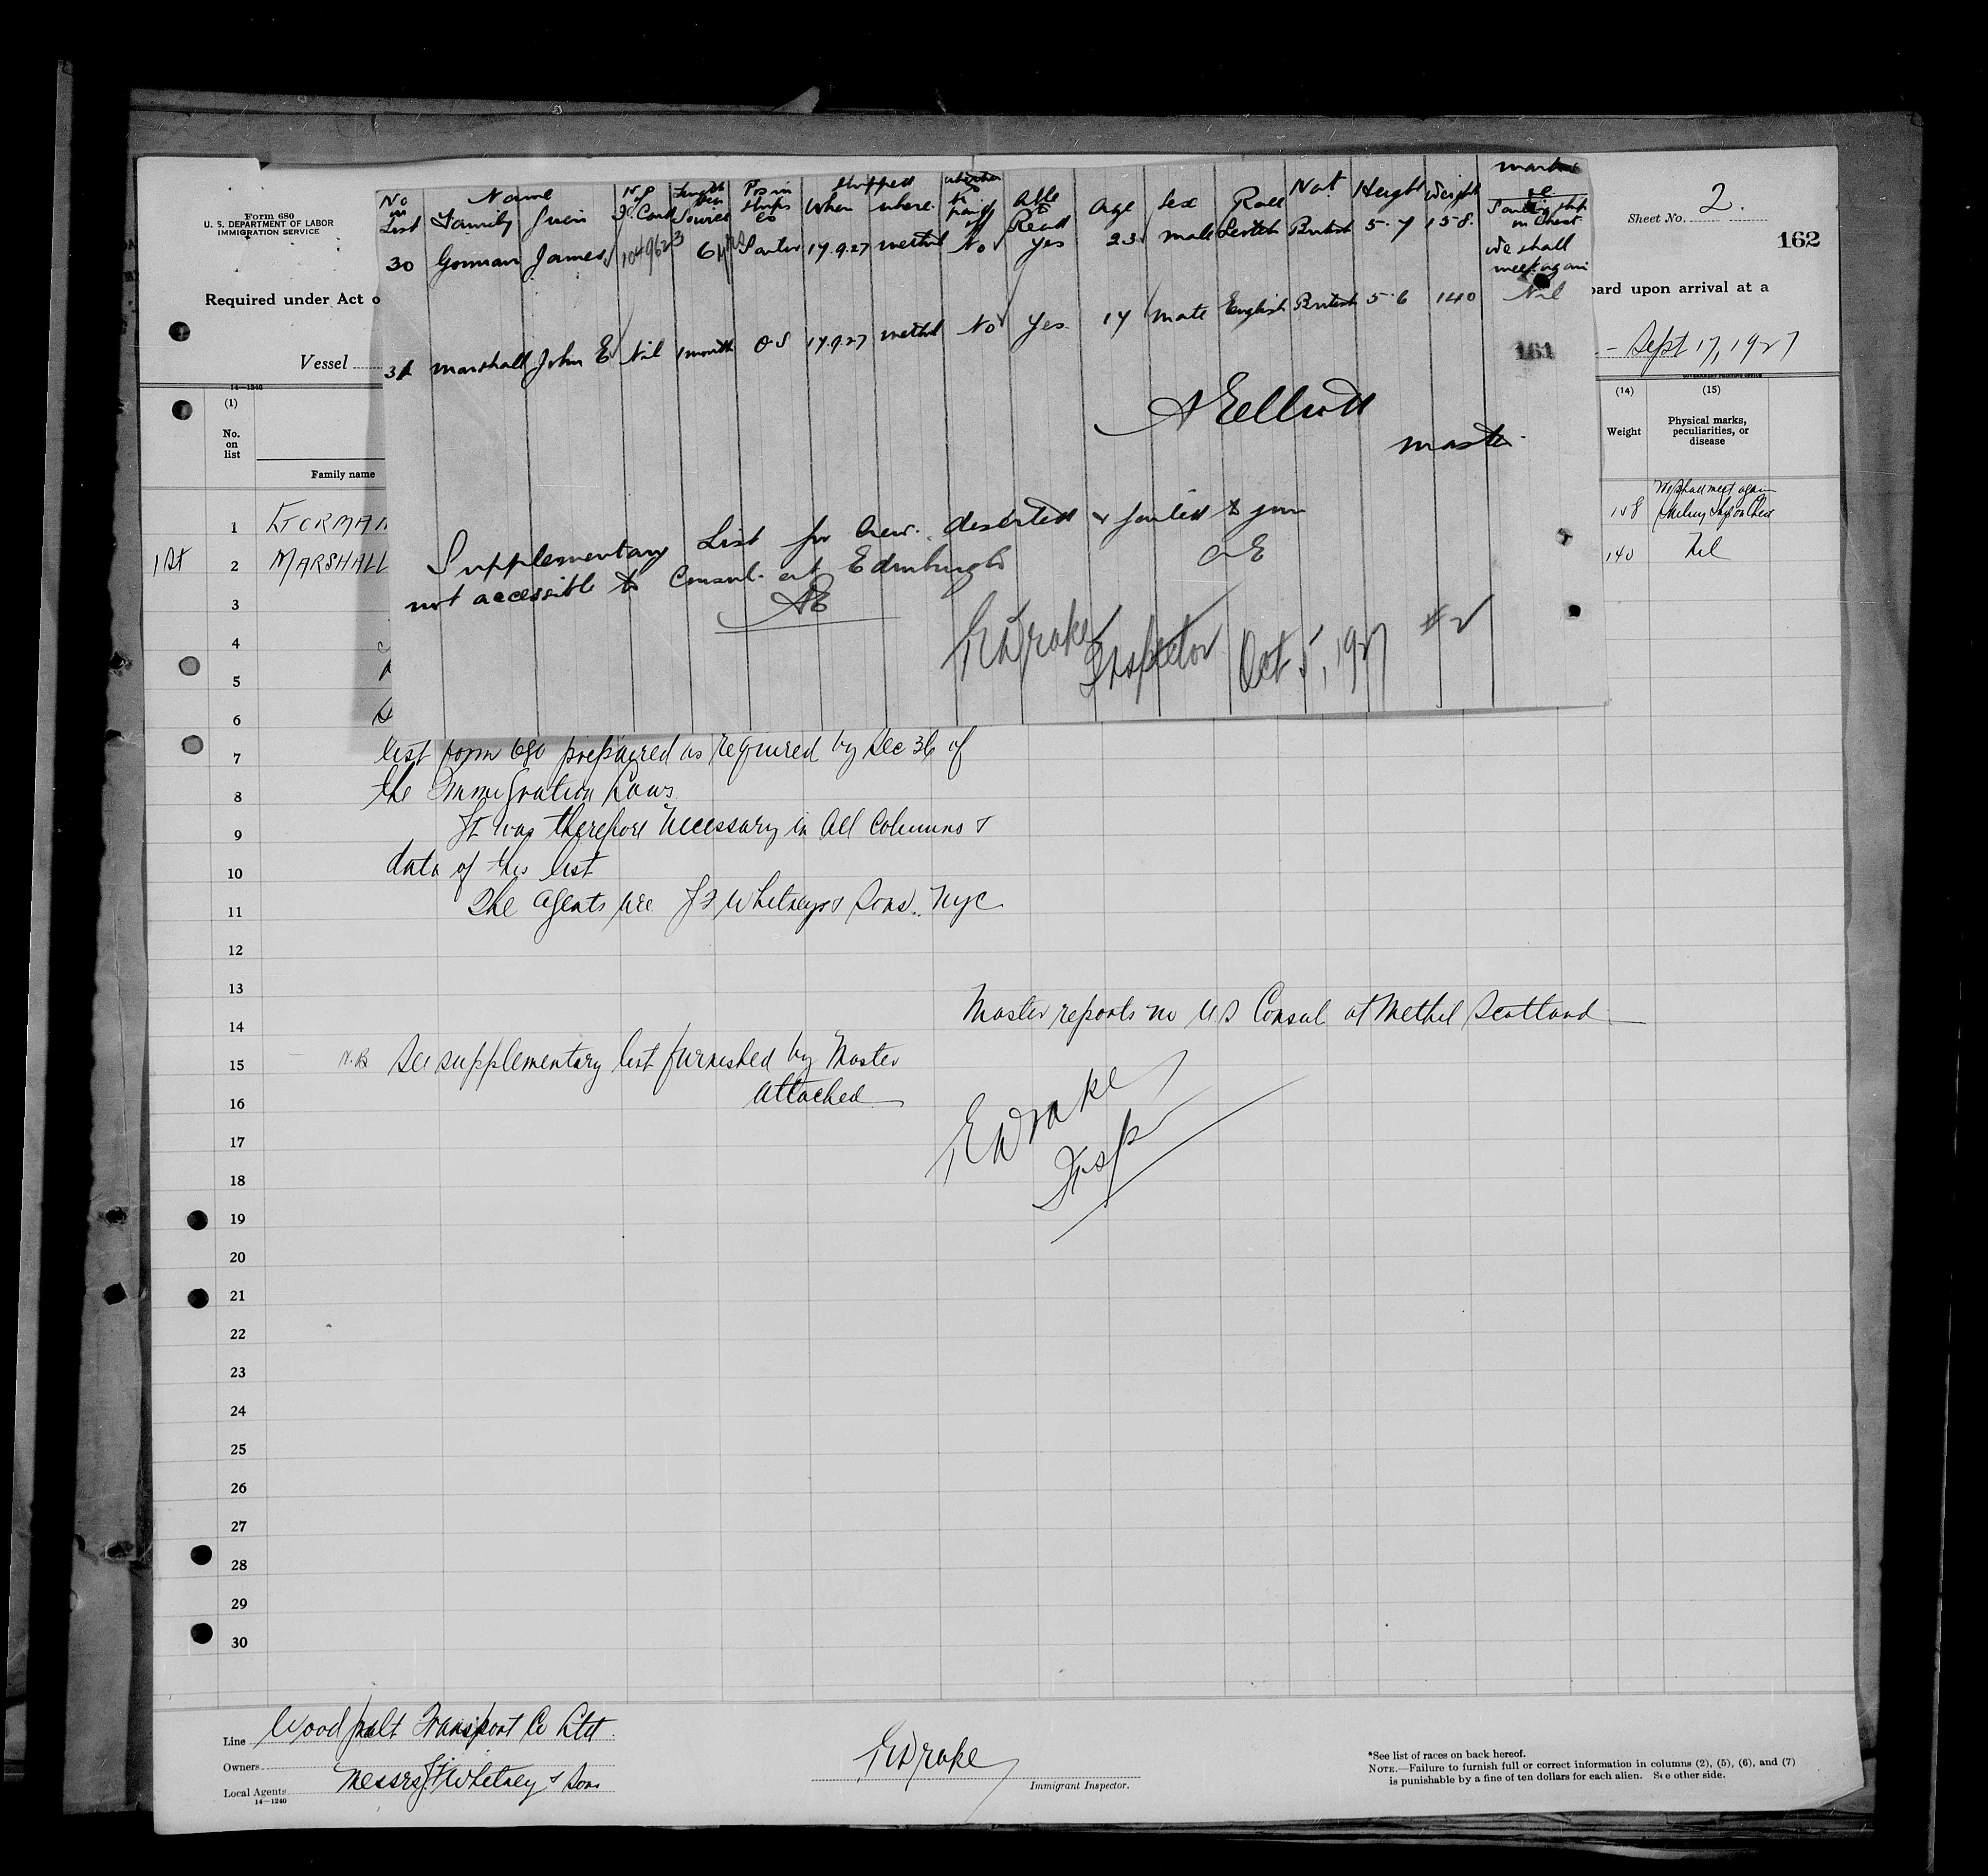 No in List Name Family Given No of Id. Card Length Sea Service Pos in Ships Co Shipped When where whether to pay off Able to Read Age Sex Race Nat Height Weight marks
Sailing ship on Chest
30 Gorman James 1049623 6 yrs Sailor 17.9.27 methil No Yes 23 male Scotch British 5-7 158. We shall meet again
31 Marshall John E Nil 1 month OS 17.9.27 methil No Yes 17 male English British 5-6 140 Nil
161
A Elliott
master
Supplementary List for Crew. deserted & failed to join
not accessible to Consul at Edinburgh
AE
AE
E Drake Inspector Oct 5, 1927 #2
Form 680
U. S. DEPARTMENT OF LABOR
IMMIGRATION SERVICE
Sheet No. 2.
162
Required under Act o
oard upon arrival at a
Vessel
Sept 17, 1927
14—1240
GOVERNMENT PRINTING OFFICE
(1) (14) (15)
No. on list
Family name
Weight
Physical marks, peculiarities, or disease
1 158 We shall meet again Sailing Ship on Chest
1st 2 MARSHALL 140 Nil
3
4
5
6
7 list form 680 prepaired as required by Sec 36 of
8 the Immigration Laws
9 It was therefore necessary in all columns &
10 data of this list
11 The agents are J F Whitney & Sons. NYC
12
13
Master reports no US Consul at Methil Scotland
14
15 N.B See supplementary list furnished by Master
16 attached
E Drake
Insp
17
18
19
20
21
22
23
24
25
26
27
28
29
30
Line Wood pulp Transport Co Ltd.
Owners
Local Agents Messrs J F Whitney & Sons
14—1240
E Drake
Immigrant Inspector.
*See list of races on back hereof.
NOTE.—Failure to furnish full or correct information in columns (2), (5), (6), and (7)
is punishable by a fine of ten dollars for each alien. See other side.